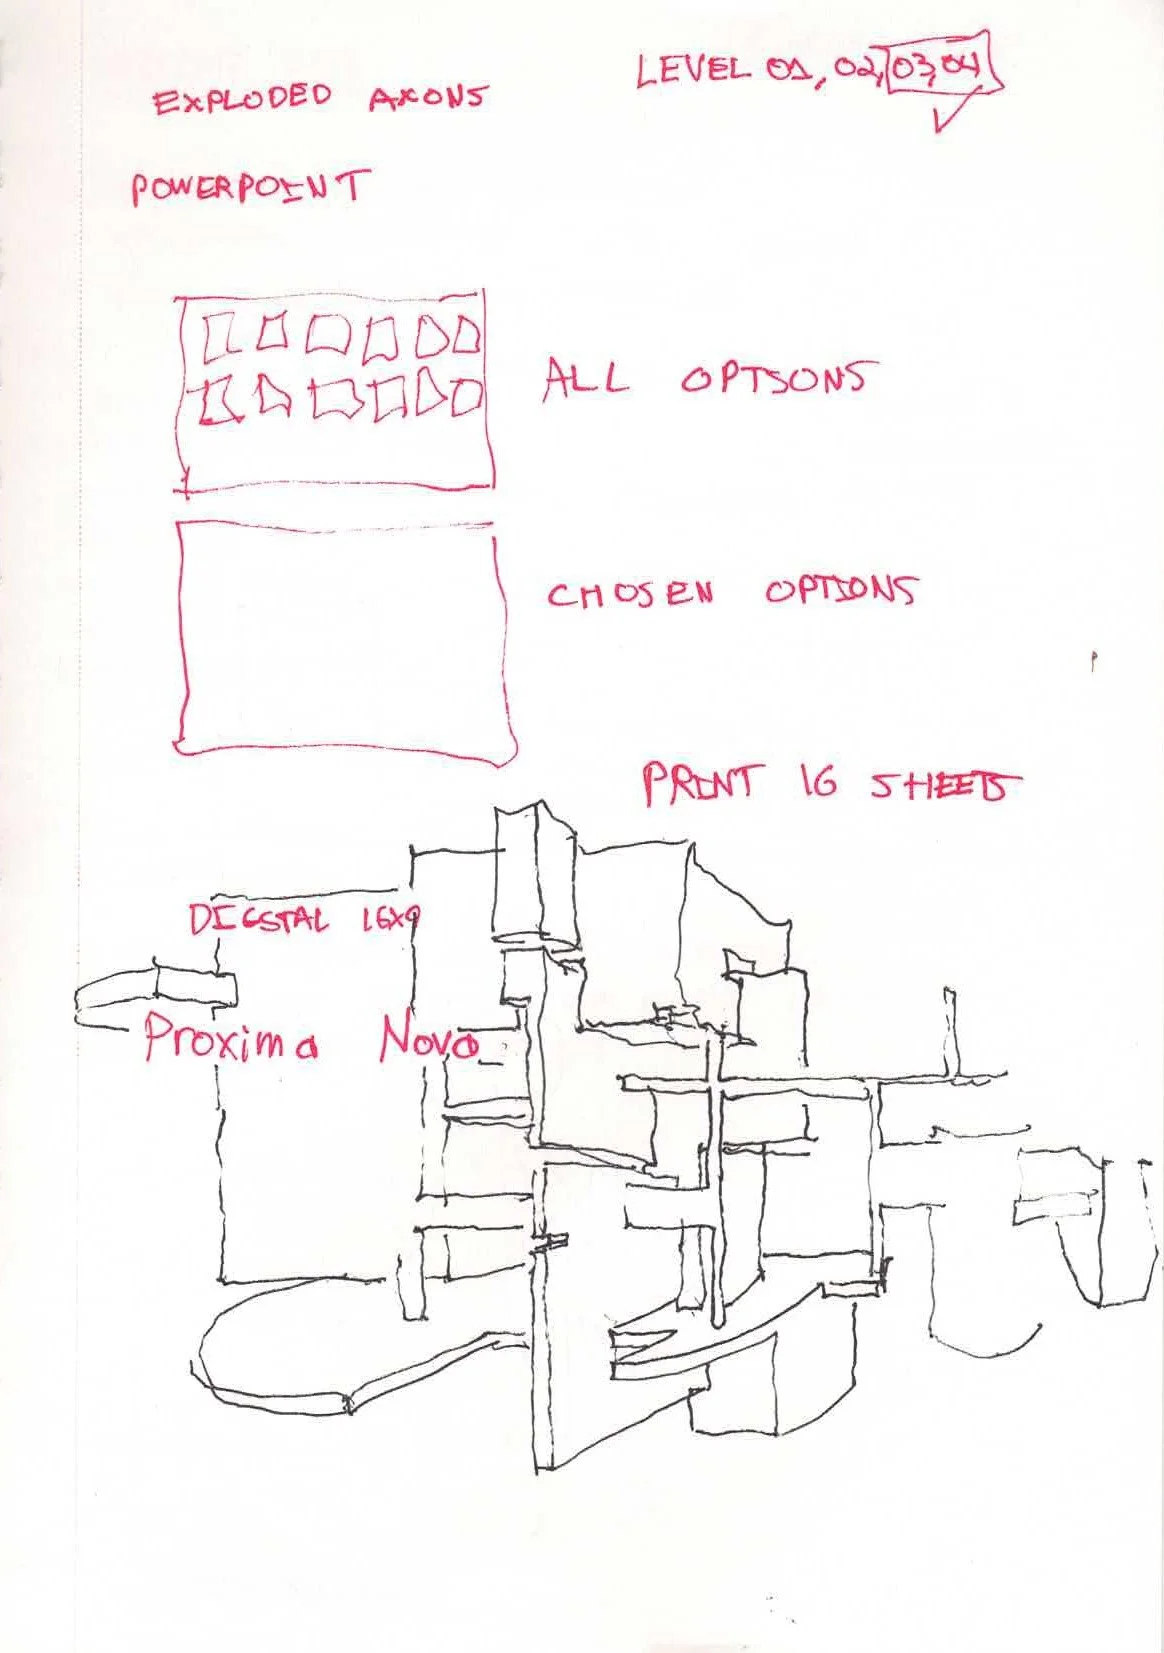 LEVEL 01, 02, 03, 04
EXPLODED AXONS
POWERPOINT
ALL OPTIONS
CHOSEN OPTIONS
PRINT 16 SHEETS
DIGITAL 16x9
Proxima Nova